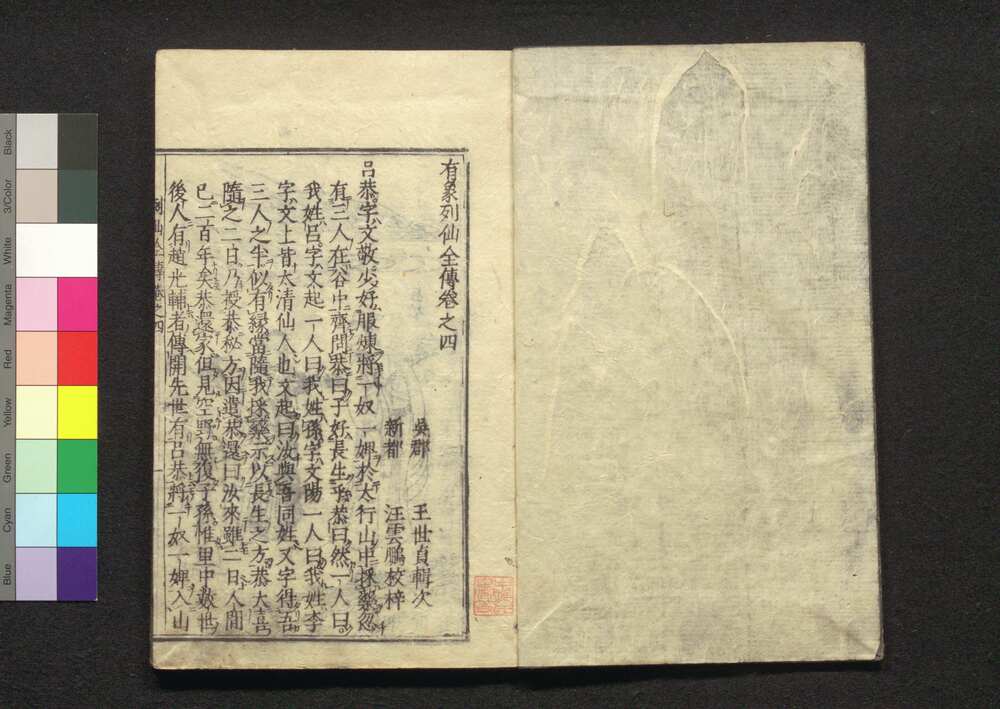 有象列仙全傳卷之四
吳郡 王世貞輯次
新都 汪雲鵬校梓
呂恭字文敬少好服煉將一奴一婢於太行山中採藥忽
有三人在谷中齊問恭曰子好長生乎恭曰然一人曰
我姓呂字文起一人曰我姓孫字文陽一人曰我姓李
字文上皆太清仙人也文起曰汝與吾同姓又字得吾
三人之半似有緣當隨我採藥示以長生之方恭大喜
隨之二日乃授恭秘方因遣恭還曰汝來雖二日人間
已二百年矣恭還家但見空野無復子孫惟里中數世
後人有趙光輔者傳開先世有呂恭將一奴一婢入山
列仙全傳卷之四
Black
3/Color
White
Magenta
Red
Yellow
Green
Cyan
Blue